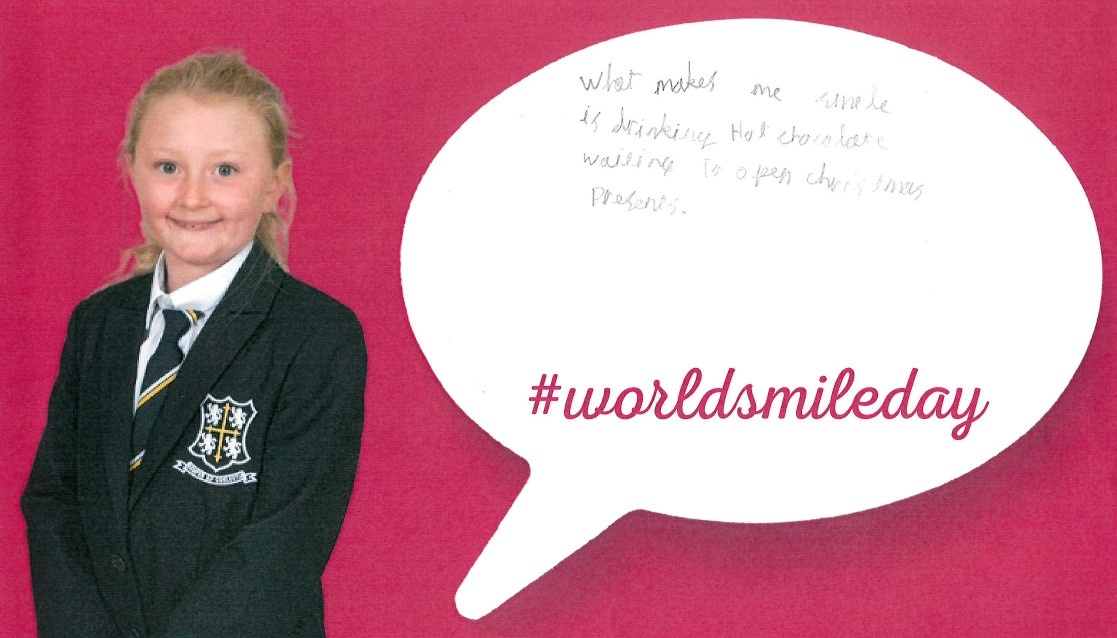 What makes me smile
is drinking Hot chocolate
waiting To open christmas
Presents.
#worldsmileday